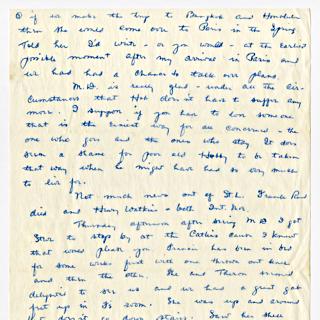 ② if we make the trip to Bangkok and Honolulu
then she would come over to Paris in the Spring
Told her I'd write - or you would - at the earliest
possible moment after my arrival in Paris and
we had had a chance to talk over plans.
M.D. is really glad - under all the cir-
cumstances that Hob doesn't have to suffer any
more. I suppose if you have to lose someone
that is the easiest way for all concerned - the
one who goes and the ones who stay. It does
seem a shame for poor old Hobby to be taken
that way when he might have had so very much
to live for.
Not much news out of St. L. Frank
died and Henry Watkins - both
Thursday afternoon after seeing M.D. I got
to step by at the Catlins cause I knew
that would please you. Francie has been in bed
for some weeks first with one throat
and then the other. She and Theron seemed
delighted to see us and we had a great gab
fest up in its room. She was up and around
but doesn't go down stairs. Saw her